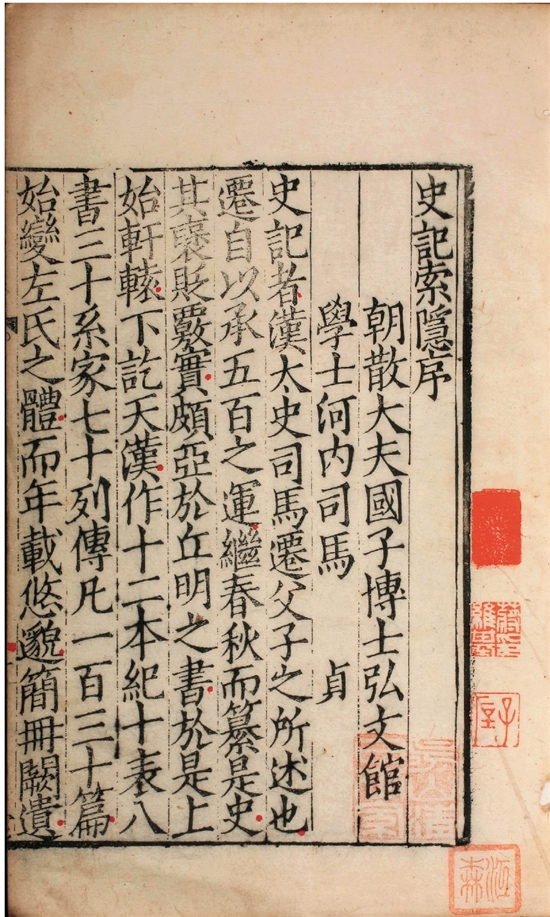 史記索隱序
朝散大夫國子博士弘文館
學士河内司馬貞
史記者漢太史司馬遷父子之所述也
遷自以承五百之運繼春秋而纂是史
其襃貶覈實頗亞於丘明之書於是上
始軒轅下訖天漢作十二本紀十表八
書三十系家七十列傳凡一百三十篇
始變左氏之體而年載悠邈簡冊闕遺